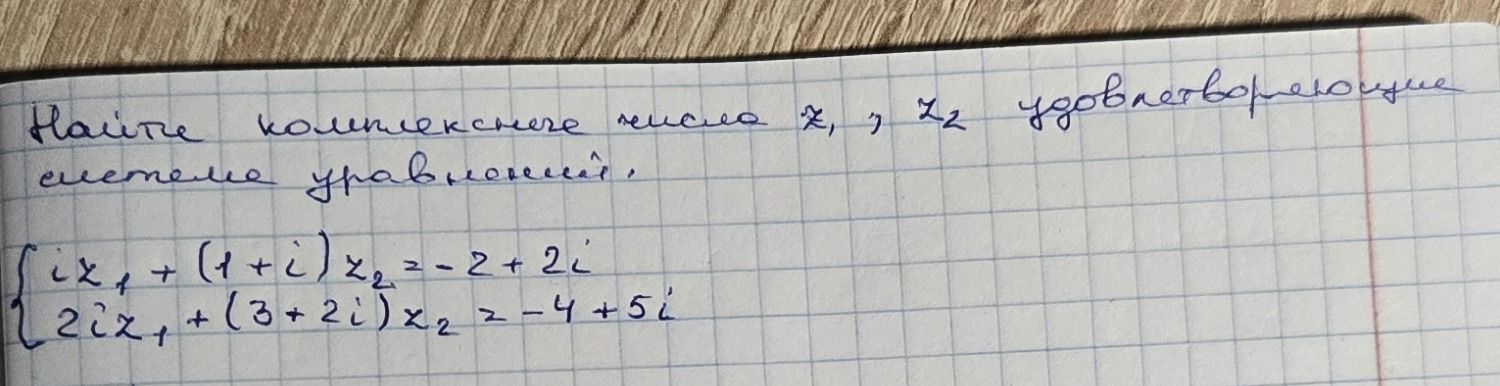 Найти комплексные числа z₁, z₂ удовлетворяющие
системе уравнений.
{ iz₁ + (1 + i) z₂ = - 2 + 2i
2iz₁ + (3 + 2i) z₂ = - 4 + 5i